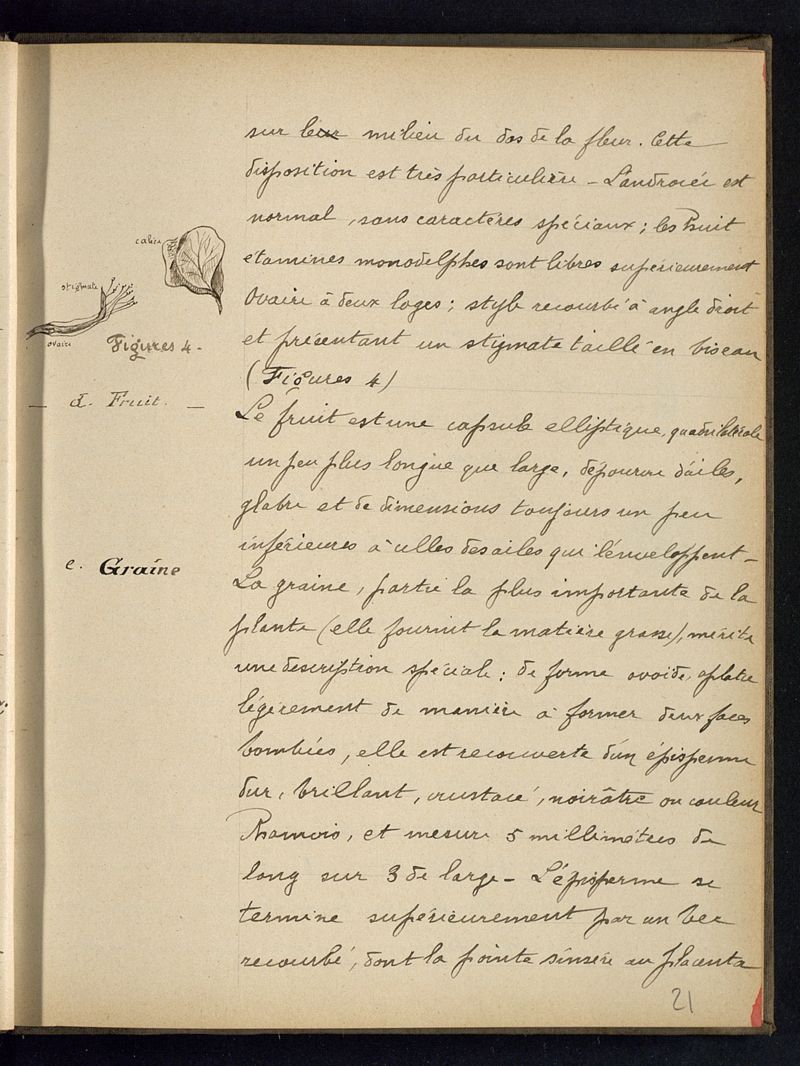 sur leur milieu du dos de la fleur. Cette
disposition est très particulière _ L'androcée est
normal, sans caractères spéciaux ; les huit
étamines monodelphes sont libres supérieurement
Ovaire à deux loges ; style recourbé à angle droit
et présentant un stigmate taillé en biseau
(Figures 4)
calice
stigmate
ovaire
Figures 4 -
_ d. Fruit. _
Le fruit est une capsule elliptique, quadrilatérale
un peu plus longue que large, dépourvue d'ailes,
glabre et de dimensions toujours un peu
inférieures à celles des ailes qui l'enveloppent _
e. Graine
La graine, partie la plus importante de la
plante (elle fournit la matière grasse), mérite
une description spéciale : de forme ovoïde, aplatie
légèrement de manière à former deux faces
bombées, elle est recouverte d'un épisperme
dur, brillant, crustacé, noirâtre ou couleur
chamois, et mesure 5 millimètres de
long sur 3 de large _ L'épisperme se
termine supérieurement par un bec
recourbé, dont la pointe s'insère au placenta
21